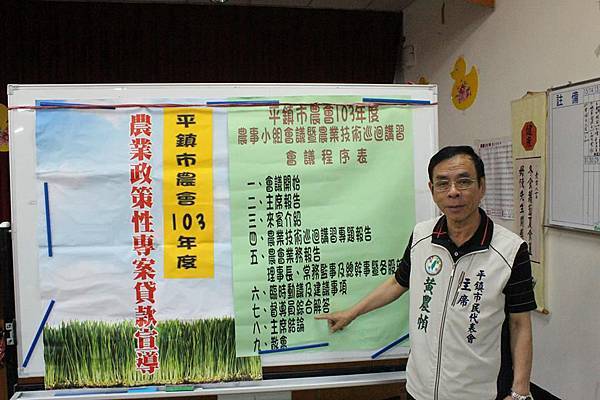 平鎮市農會103年度
農業政策性專案貸款宣導
平鎮市農會103年度
農事小組會議暨農業技術巡迴講習
會議程序表
一、會議開始
二、主席報告
三、來賓介紹
四、農業技術巡迴講習專題報告
五、農會業務報告
理事長、常務監事及總幹事暨各股
六、臨時動議及建議事項
七、督導員綜合解答
八、主席結論
九、散會
平鎮市民代表會
主席
黃農楨
註備